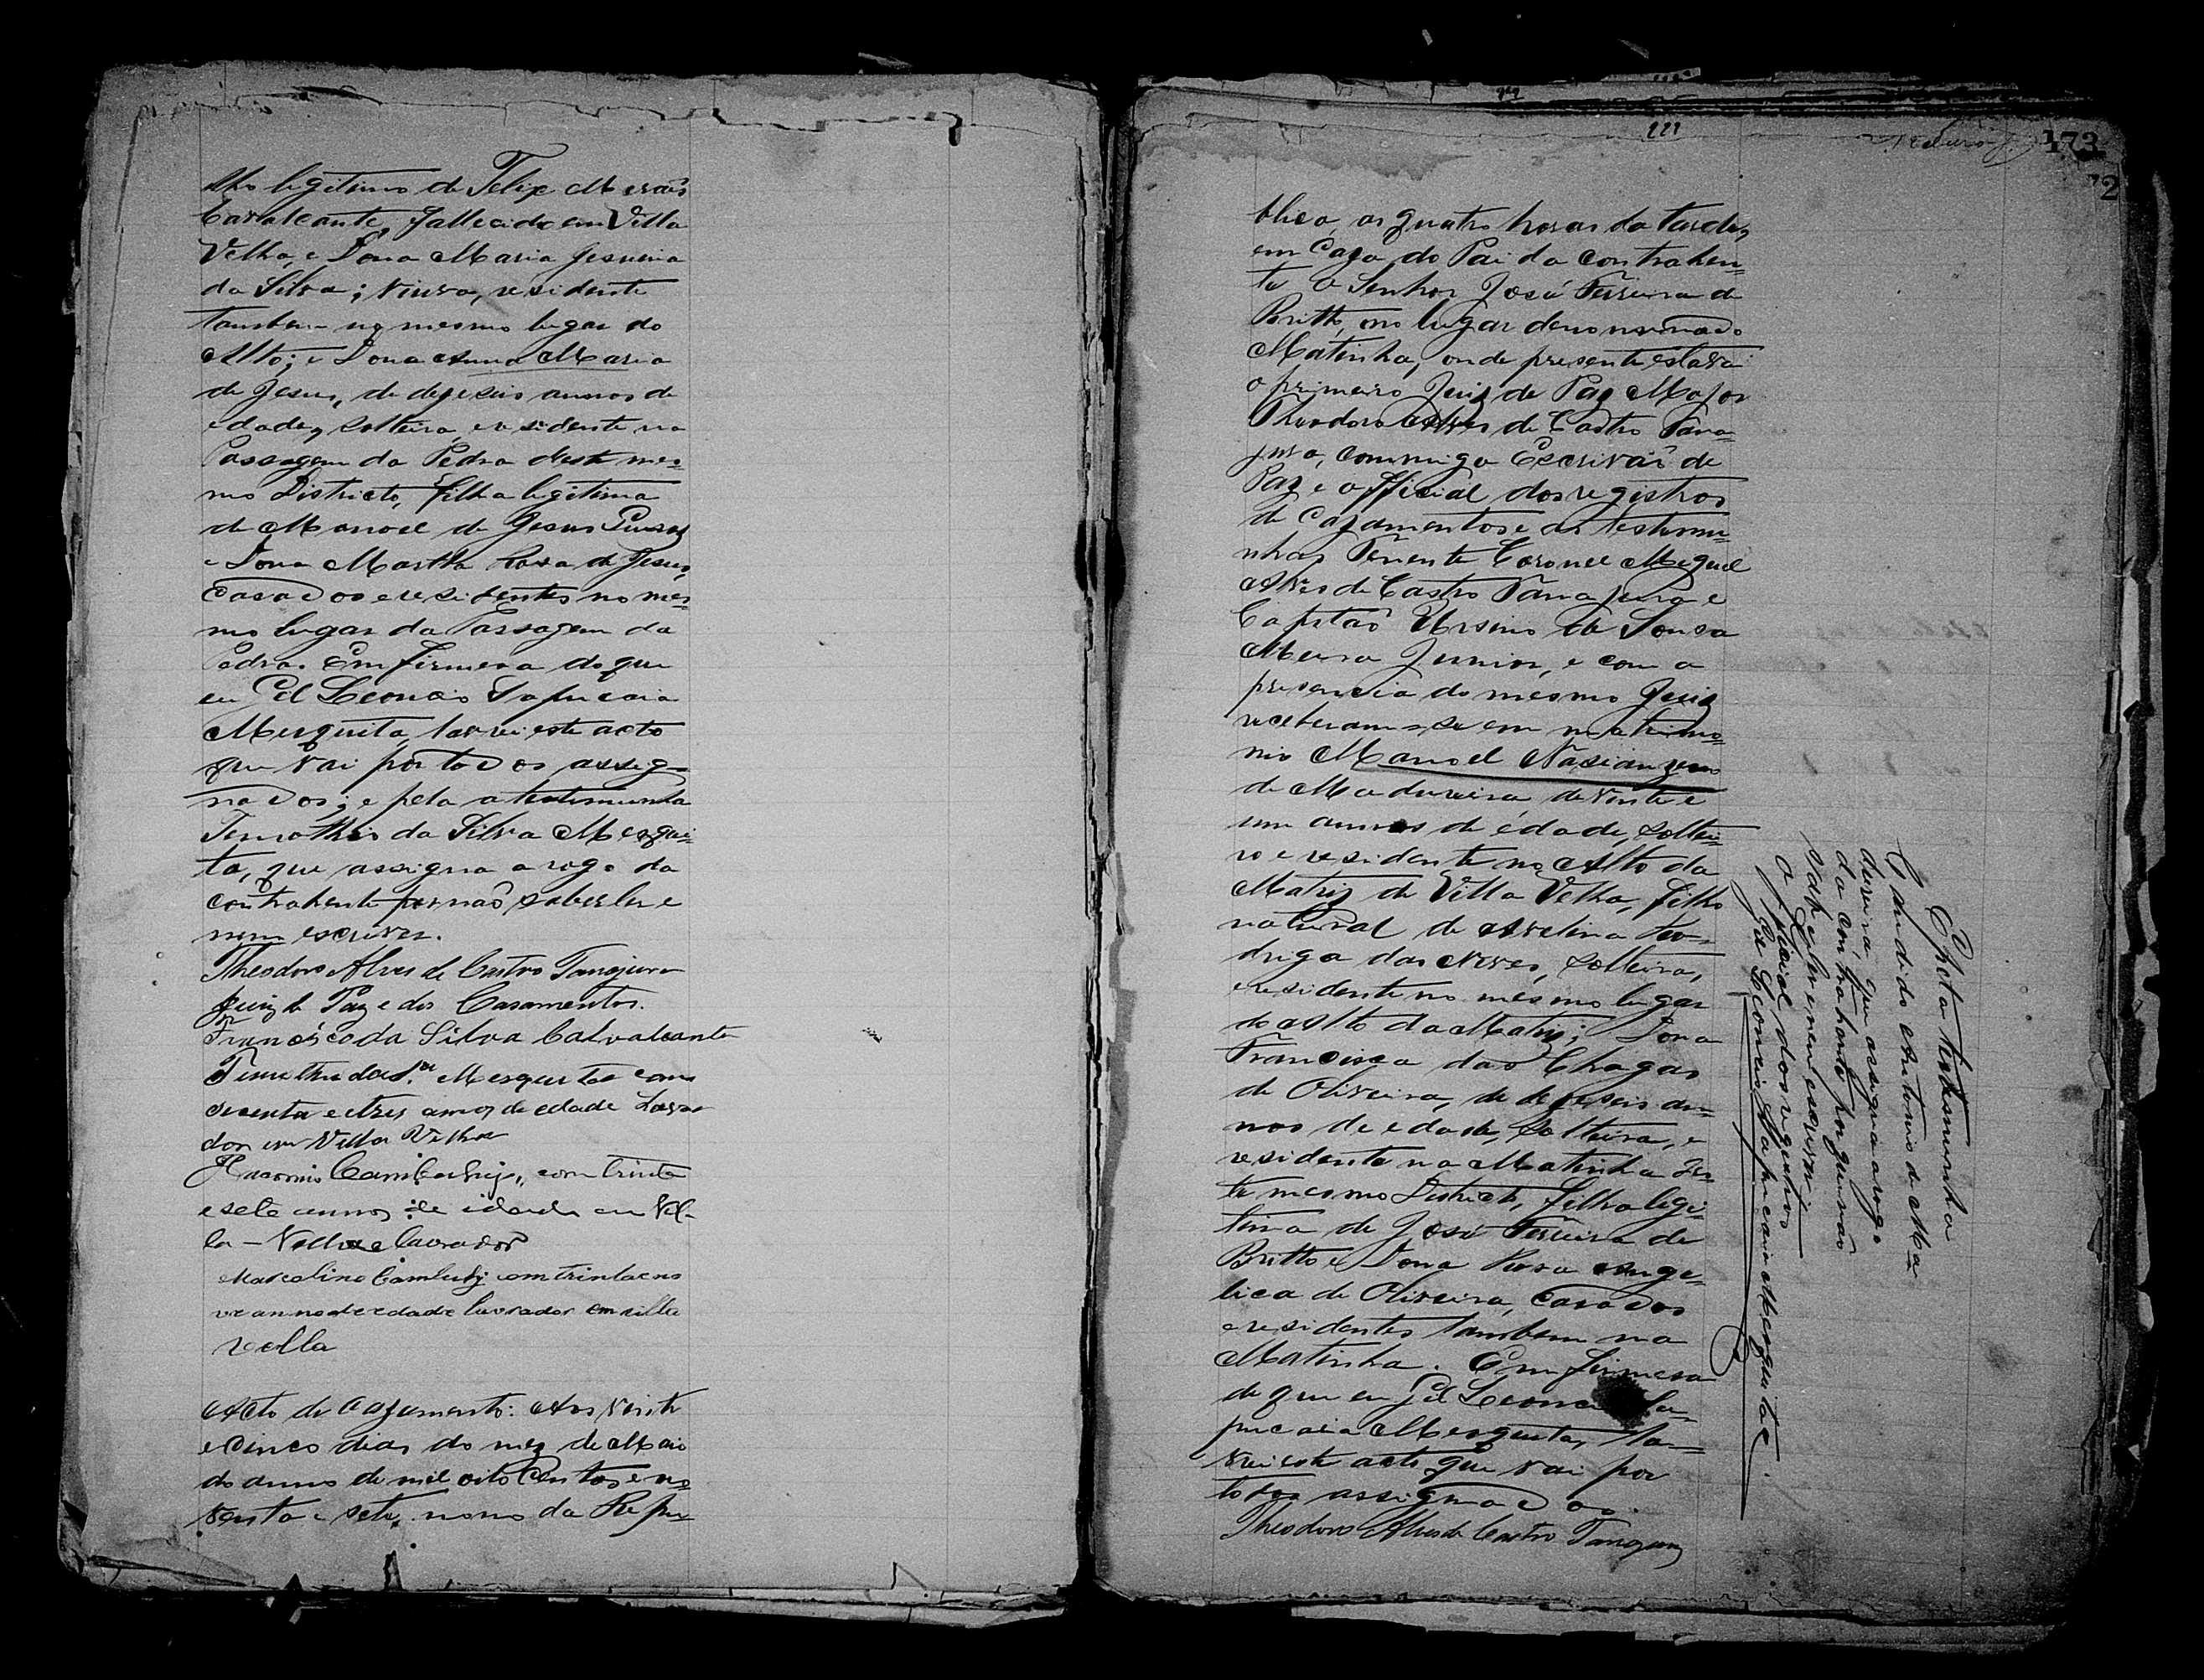 lho legitimo de Felix Moraes
Cavalcante, fallecido em Villa
Velha, e Dona Maria Jesuina
da Silva; viuva, residente
tambem no mesmo lugar do
Alto; e Dona Anna Maria
de Jesus, de dezeseis annos de
edade, solteira, residente na
Passagem da Pedra deste mes=
mo Districto, filha legitima
de Manoel de Jesus
e Dona Martha Rosa de Jesus,
casados e residentes no mes=
mo lugar da Passagem da
Pedra. Em firmeza do que
eu Gil Leoncio Sapucaia
Mesquita, lavrei este acto
que vai por todos assig=
nados; e pela a testimunha
Timotheo da Silva Mesqui=
ta, que assigna a rogo da
contrahente por não saber ler e
nem escriver.
Theodoro Alves de Castro Tanajura
Juiz de Paz e dos Casamentos.
Francisco da Silva Calvalcante
Timotheo da S.ª Mesquita com
secenta e tres annos de edade Lavra
dor em Villa Velha
Cambuhy, com trinta
e sete annos de idade em Vil-
la-Velha e lavrador
Marcolino Cambuhy com trinta e no
ve annos de edade lavrador em villa
vella
Acto de cazamento: Aos vinte
e cinco dias do mez de Maio
do anno de mil oito centos e no=
venta e sete, nono da Repu=
173
72
121
blica, as quatro horas da tarde,
em Caza do Pai da contrahen=
te o Senhor José Ferreira de
Britto, no lugar denominado
Matinha, onde presente estava
o primeiro Juiz de Paz Major
Theodoro Alves de Castro Tana=
jura, commigo Escrivão de
Paz e official dos registros
de Cazamentos e as testimu=
nhas Tenente Coronel Miguel
Alves de Castro Tanajura e
Capitão Ursino de Sousa
Meira Junior, e com a
presencia do mesmo Juiz
receberam-se em matrimo=
nio Manoel Nasianzeno
de Madureira de vinte e
um annos de édade, soltei=
ro e residente no Alto da
Matriz de Villa Velha, filho
natural de Avelina Ro=
driga das Neves, solteira,
e residente no mesmo lugar
do Alto da Matriz; Dona
Francisca das Chagas
de Oliveira, de dezeseis an=
nos de edade, solteira, e
residente na Matinha des=
te mesmo Districto, filha legi=
tima de José Ferreira de
Britto e Dona Rosa Ange=
lica de Oliveira, casados
e residentes tambem na
Matinha. Em firmesa
do que eu Gil Leoncio Sa=
pucaia Mesquita, la=
vrei este acto que vai por
todos assignados.
Theodoro Alves de Castro Tanajura
testimunha
Candido Antonio de Ma
dureira, que assigna a rogo
da contrahente por que não
sabe ler e nem escriver.
O official dos registros
Gil Leoncio Sapucaia Mesquita.